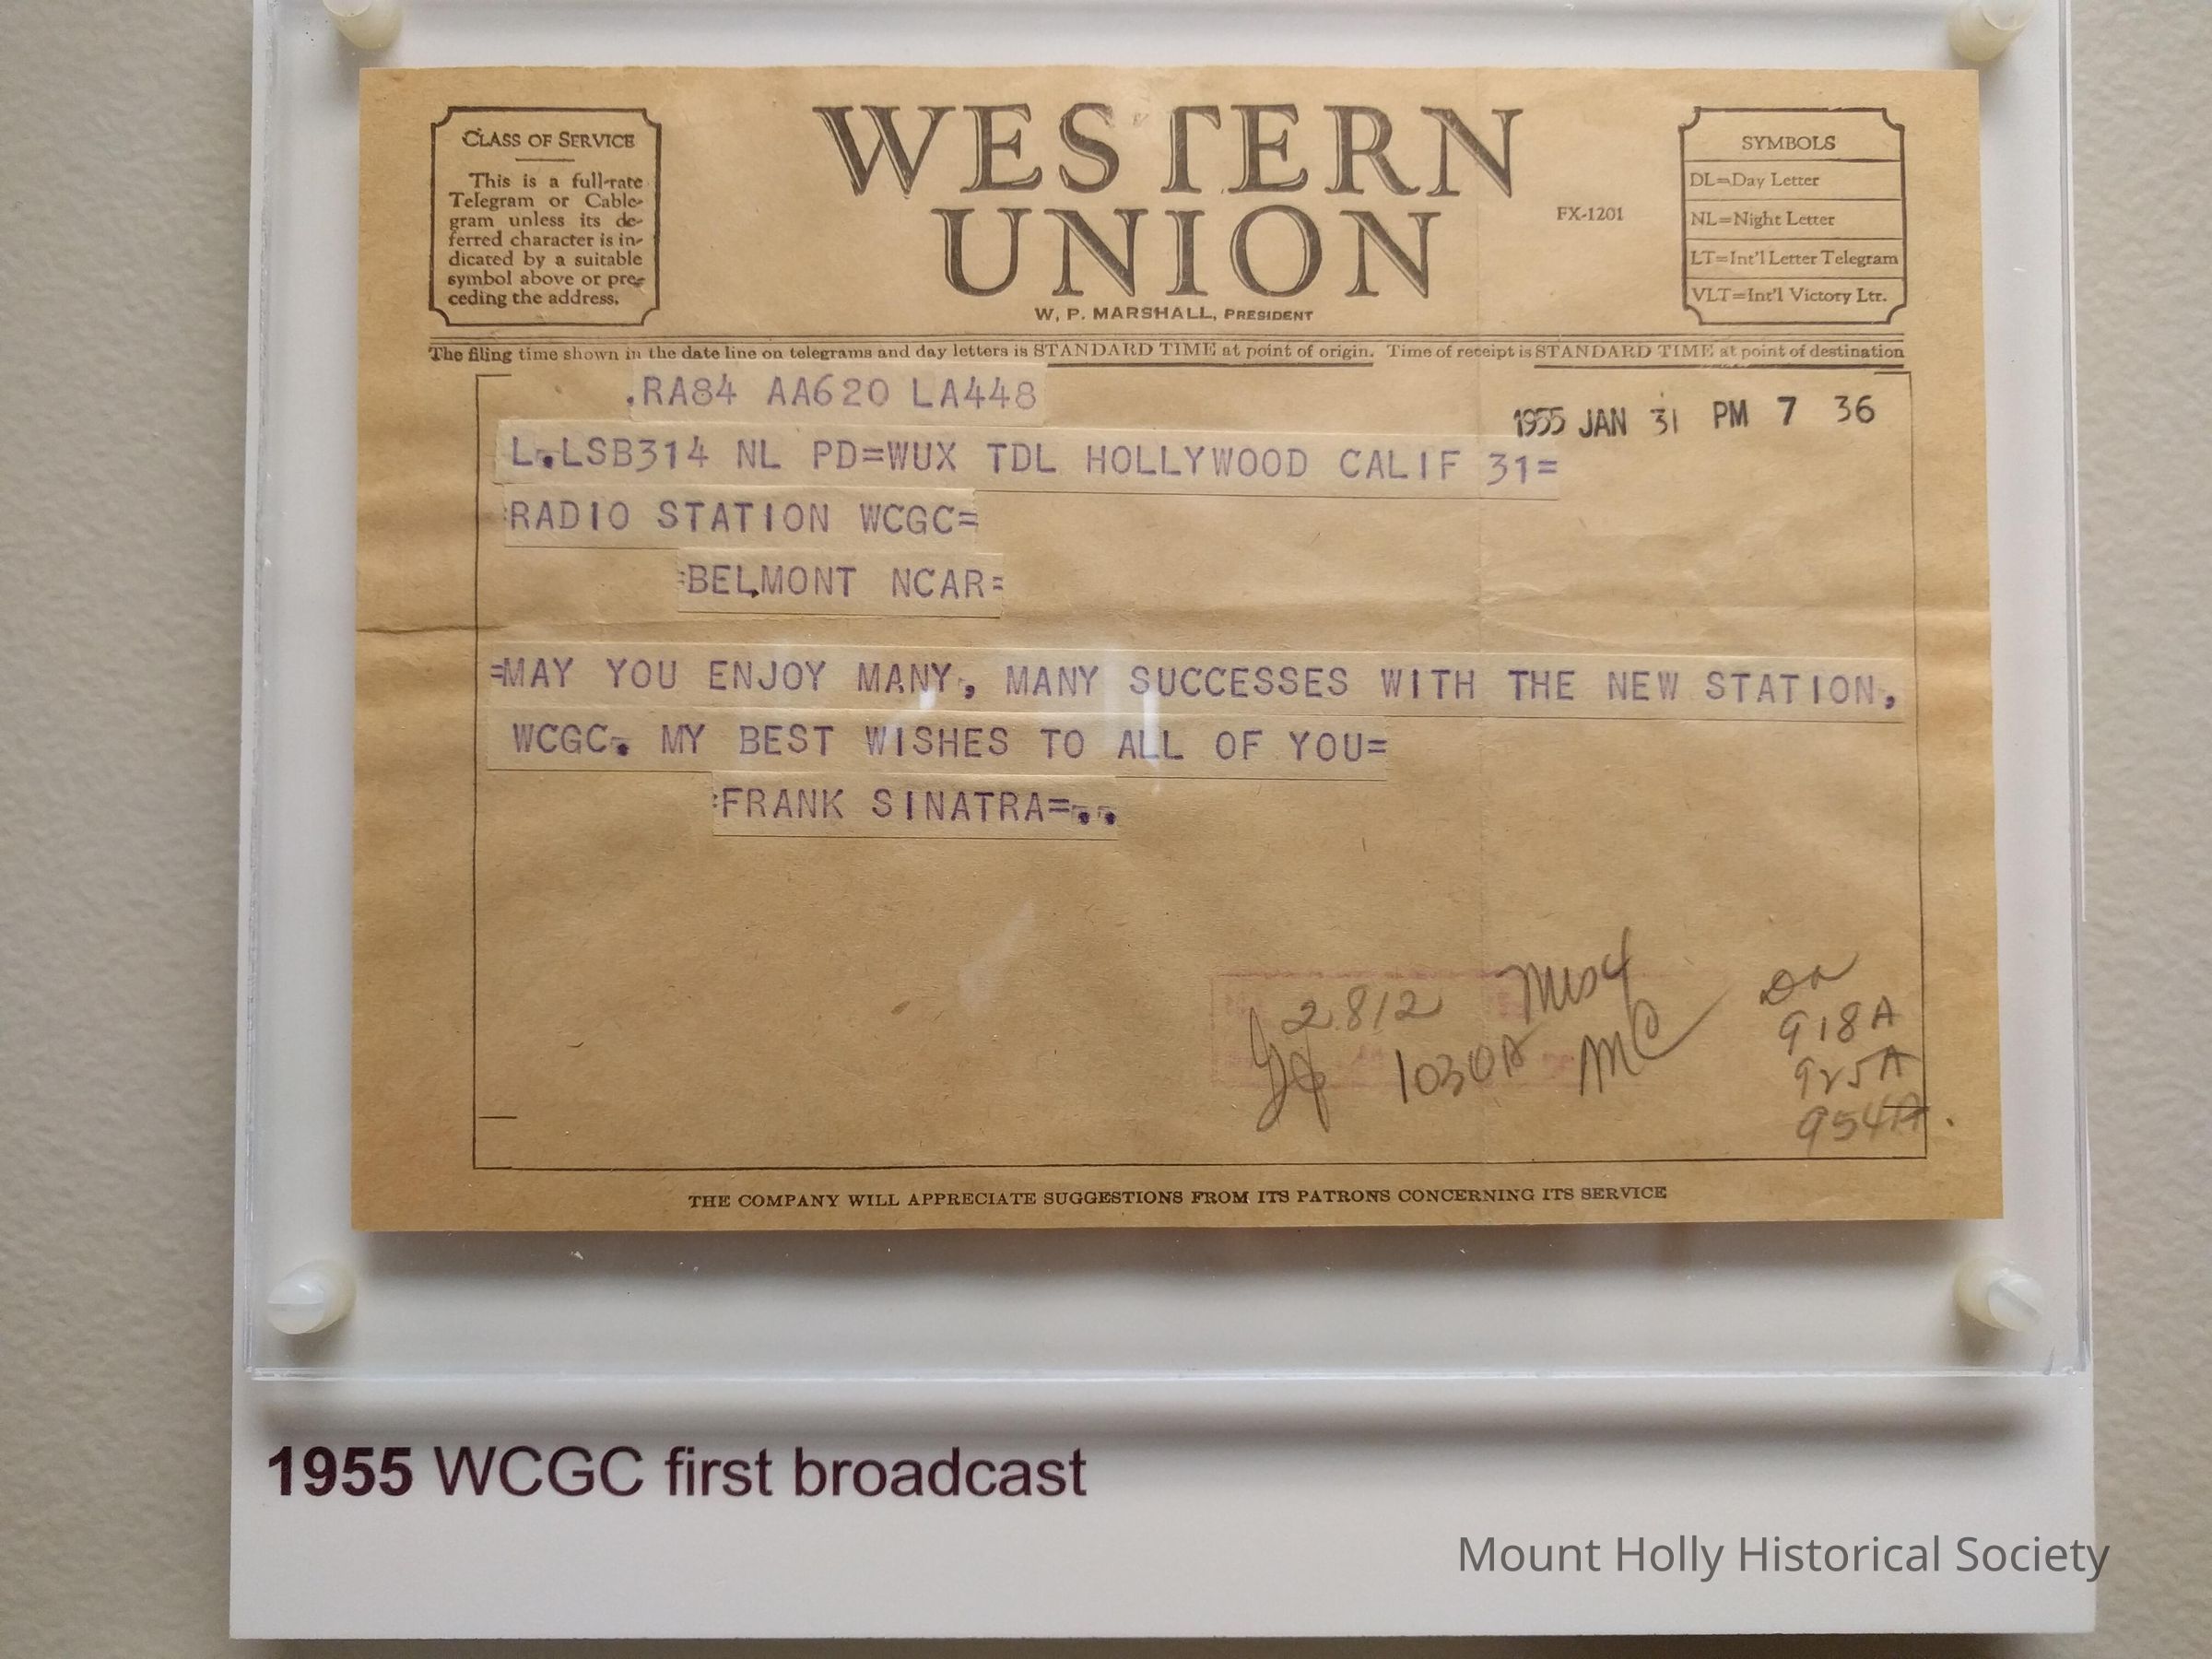 CLASS OF SERVICE
This is a full-rate
Telegram or Cable-
gram unless its de-
ferred character is in-
dicated by a suitable
symbol above or pre-
ceding the address.
WESTERN
UNION
W. P. MARSHALL, PRESIDENT
FX-1201
SYMBOLS
DL=Day Letter
NL=Night Letter
LT=Int'l Letter Telegram
VLT=Int'l Victory Ltr.
The filing time shown in the date line on telegrams and day letters is STANDARD TIME at point of origin. Time of receipt is STANDARD TIME at point of destination
.RA84 AA620 LA448
1955 JAN 31 PM 7 36
L.LSB314 NL PD=WUX TDL HOLLYWOOD CALIF 31=
RADIO STATION WCGC=
=BELMONT NCAR=
=MAY YOU ENJOY MANY, MANY SUCCESSES WITH THE NEW STATION,
WCGC. MY BEST WISHES TO ALL OF YOU=
=FRANK SINATRA=..
2812
1030A MC
918A
925A
954A.
THE COMPANY WILL APPRECIATE SUGGESTIONS FROM ITS PATRONS CONCERNING ITS SERVICE
1955 WCGC first broadcast
Mount Holly Historical Society